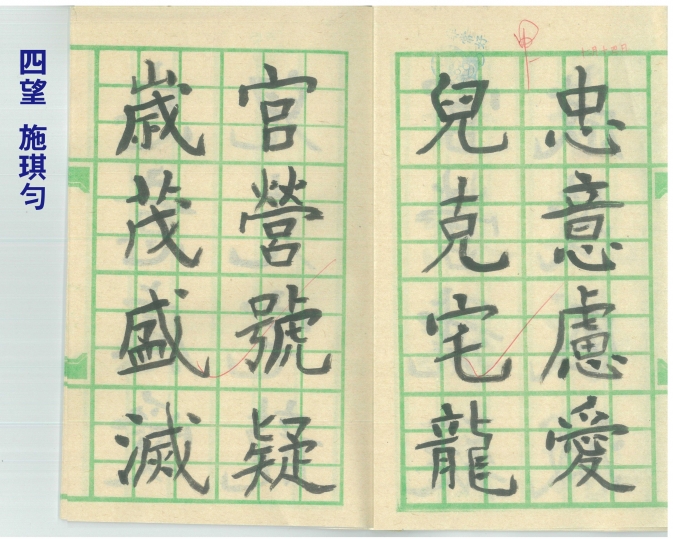 四望 施琪勻
忠意慮愛
兒克宅龍
官營號疑
歲茂盛滅
甲上